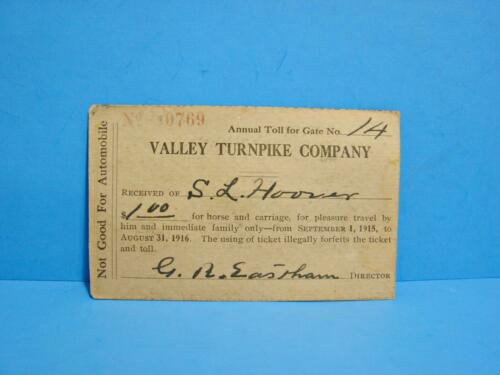 Nº 10769
Annual Toll for Gate No. 14
VALLEY TURNPIKE COMPANY
RECEIVED OF S. L. Hoover
$1.00 for horse and carriage, for pleasure travel by
him and immediate family only—from SEPTEMBER 1, 1915, to
AUGUST 31, 1916. The using of ticket illegally forfeits the ticket
and toll.
G. R. Eastham DIRECTOR
Not Good For Automobile